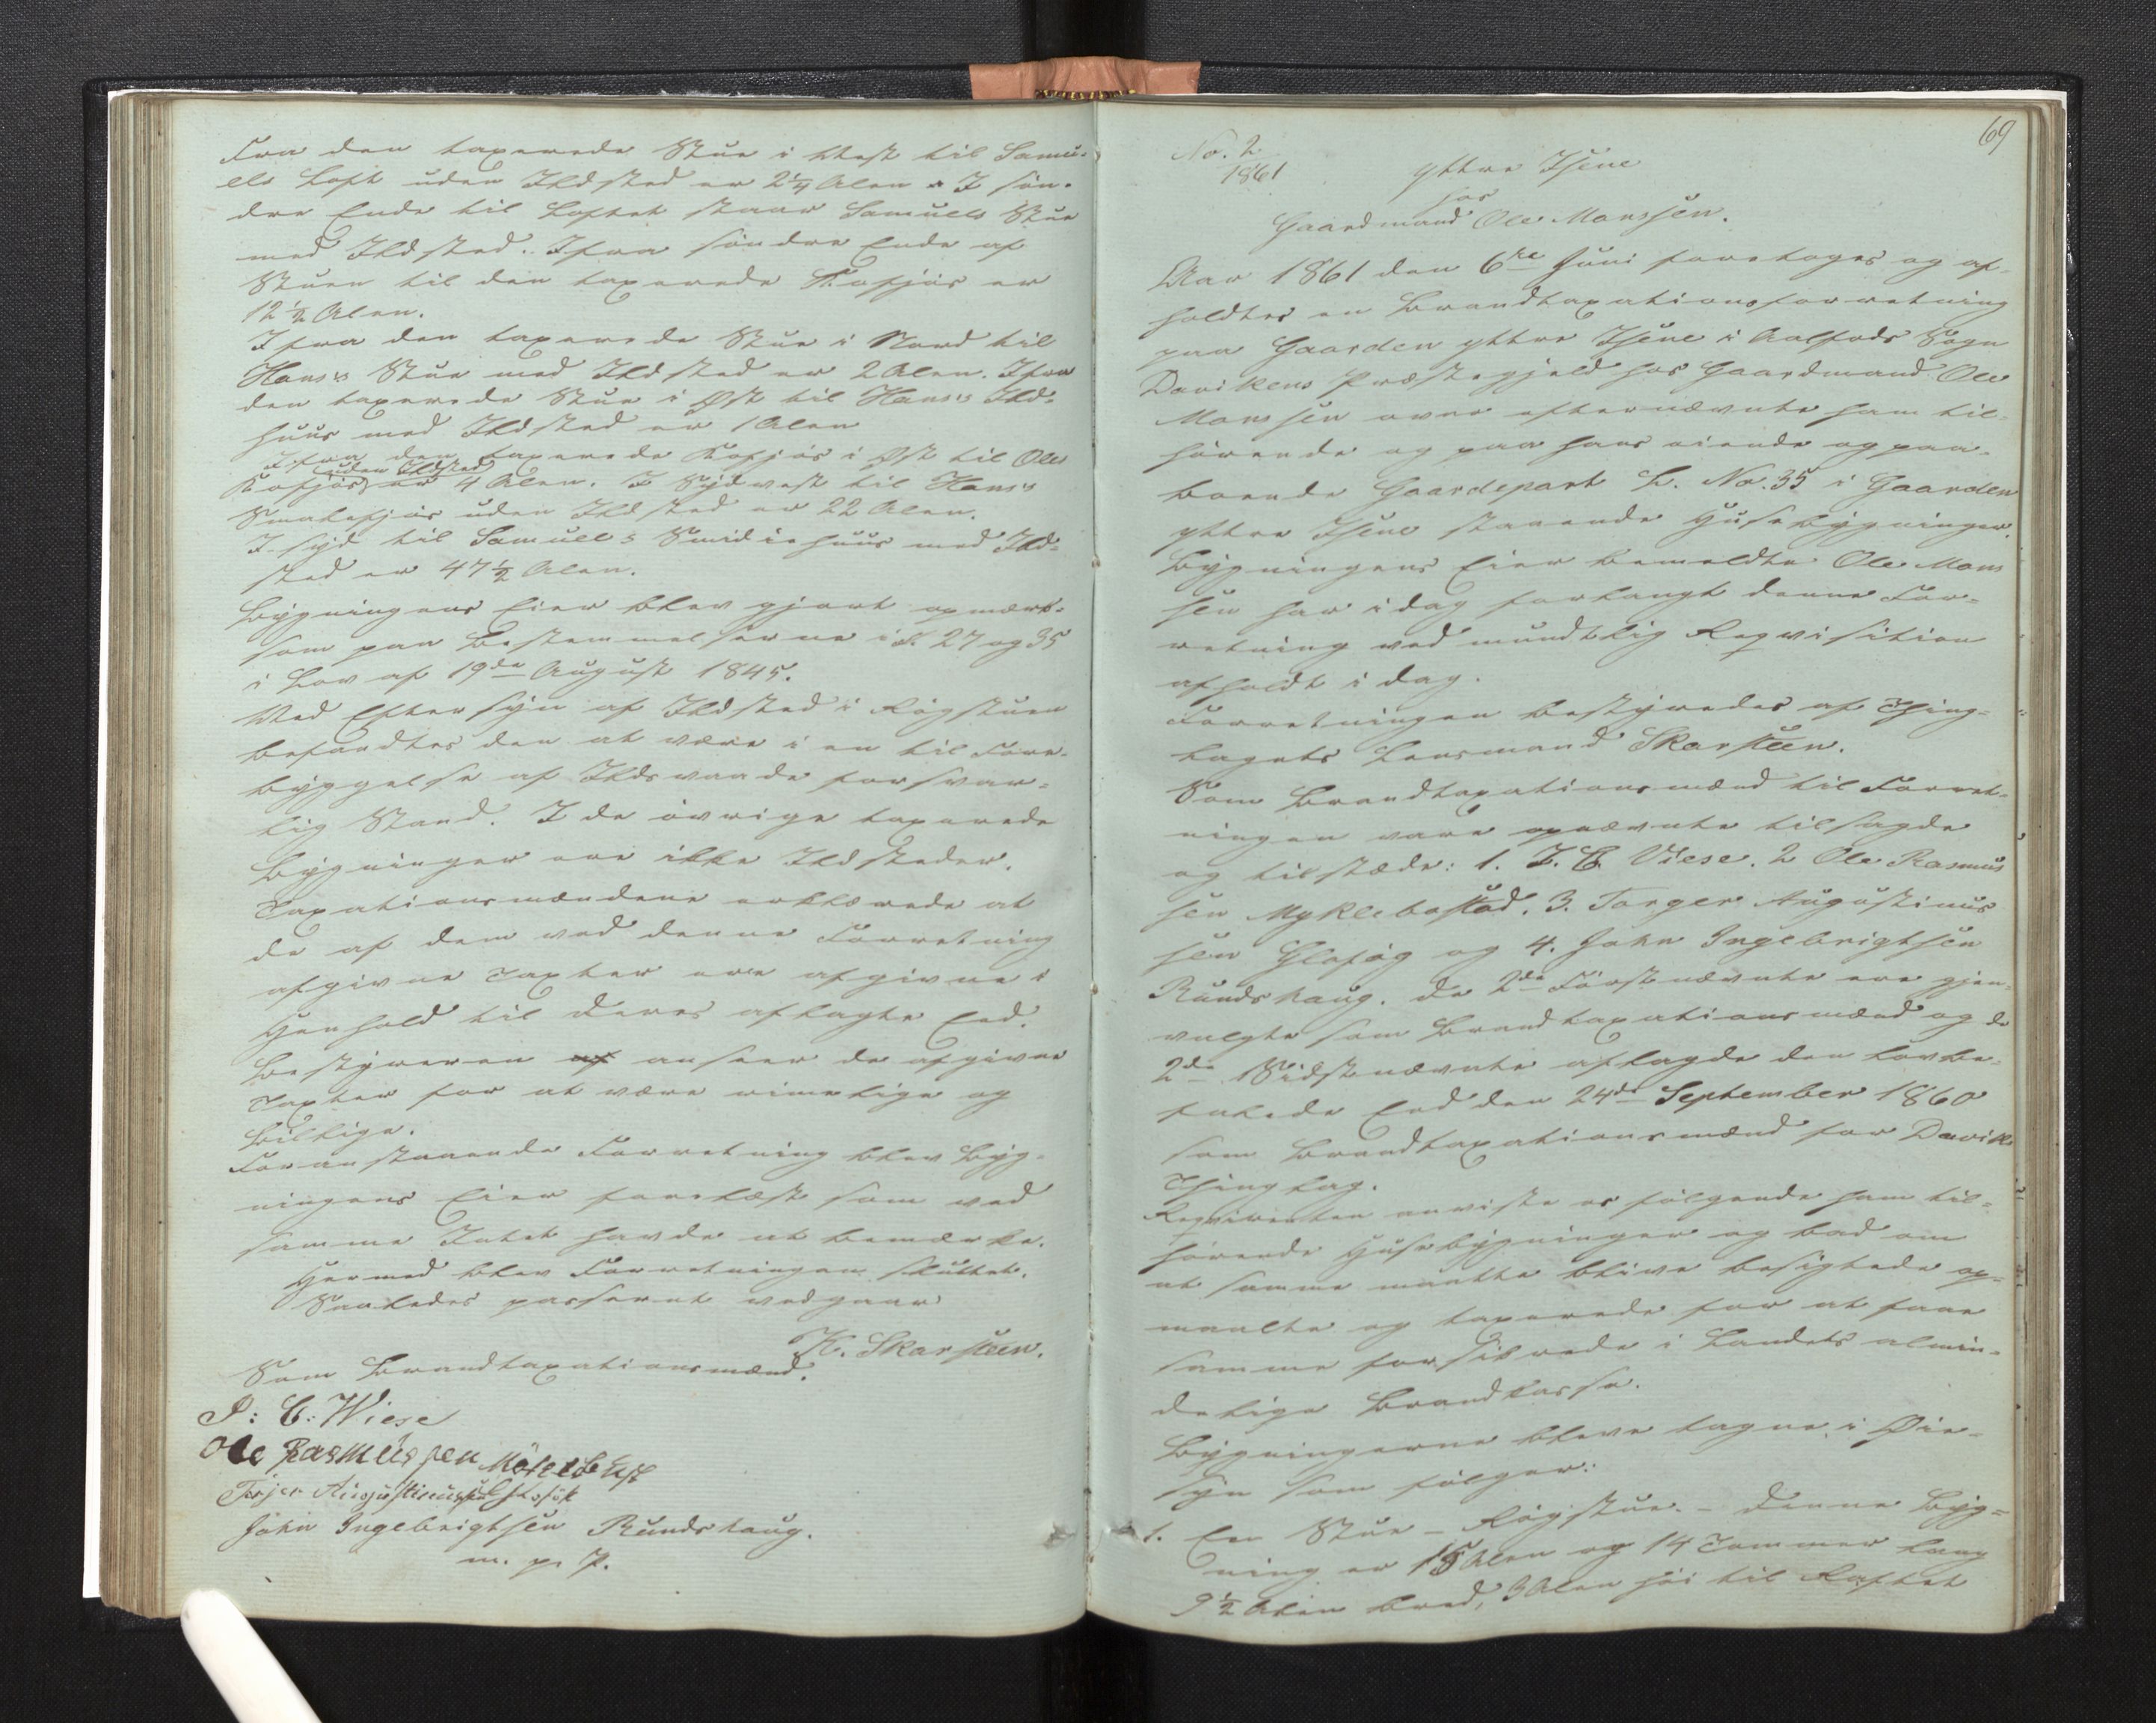 Fra den taxerede Stue i Vest til Samu-
els Loft uden Ildsted er 2 1/4 Alen. I søn-
dre Ende til Loftet staar Samuels Stue
med Ildsted. Ifra søndre Ende af
Stuen til den taxerede Kofjøs er
12 1/2 Alen.
Ifra den taxerede Stue i Nord til
Hans's Stue med Ildsted er 2 Alen. Ifra
den taxerede Stue i Øst til Hans's Ild-
huus med Ildsted er 1 Alen
Ifra den taxerede Kofjøs i Øst til Oles
uden Ildsted
Kofjøs er 4 Alen. I Sydvest til Hans's
Smalefjøs uden Ildsted er 22 Alen.
I Syd til Samuels Smidiehuus med Ild-
sted er 47 1/2 Alen.
Bygningens Eier blev gjort opmærk-
som paa Bestemmelserne i §. 27 og 35
i Lov af 19de August 1845.
Ved Eftersyn af Ildsted i Røgstuen
befandtes den at være i en til Fore-
byggelse af Ildsvaade forsvar-
lig Stand. I de øvrige taxerede
Bygninger ere ikke Ildsteder.
Taxationsmændene erklærede at
de af dem ved denne Forretning
afgivne Taxter ere afgivne i
Henhold til deres aflagte Eed.
Bestyreren af anseer de afgivne
Taxter for at være rimelige og
billige.
Foranstaaende Forretning blev Byg-
ningens Eier forelæst som ved
samme Intet havde at bemærke.
Hermed blev Forretningen sluttet.
Saaledes passeret vedgaar
K. Skarsteen.
Som Brandtaxationsmænd.
J: C: Wiese
Ole Rasmussen
Torjer Augustinussen
John Ingebrigtsen Rundshaug.
m. p. P.
69
No. 2
1861
Yttre Isene
hos
Gaardmand Ole Monssen.
Aar 1861 den 6te Juni foretoges og af-
holdtes en Brandtaxationsforretning
paa Gaarden yttre Isene i Aalfods Sogn
Davikens Præstegjeld hos Gaardmand Ole
Monssen over efternævnte ham til-
hørende og paa hans eiende og paa-
boende Gaardepart L. No. 35 i Gaarden
yttre Isene staaende Husebygninger.
Bygningens Eier bemeldte Ole Mons
sen har idag forlangt denne For-
retning ved mundtlig Reqvisition
afholdt i dag.
Forretningen bestyredes af Thing-
lagets Lensmand Skarsteen.
Som Brandtaxationsmænd til Forret-
ningen vare opnævnte tilsagde
og tilstæde: 1. J. C. Viese. 2 Ole Rasmus
sen Myklebostad. 3. Torger Augustinus
sen Elsføg og 4. John Ingebrigtsen
Rundshaug. De 2de Førstnævnte ere gjen-
valgte som Brandtaxationsmænd og de
2de Sidstnævnte aflagde den lovbe-
falede Eed den 24de September 1860
som Brandtaxationsmænd for Davik
Thinglag.
Reqvirenten anviste os følgende ham til-
hørende Husebygninger og bad om
at samme maatte blive besigtede op-
maalte og taxerede for at faae
samme forsikrede i Landets almin-
delige Brandkasse.
Bygningerne bleve tagne i Øie-
syn som følger:
1. Een Stue - Røgstue. - Denne Byg-
ning er 15 Alen og 14 Tommer lang
9 1/2 Alen bred, 3 Alen høi til Raftet